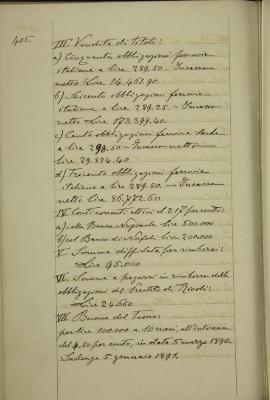 405.
III Vendita di titoli:
a) Cinquanta obbligazioni ferrovie
italiane a lire 289.50 - Incasso
netto Lire 14.461.90
b) Seicento obbligazioni ferrovie
italiane a lire 289.25 - Incasso
netto Lire 173.399.40.
c) Cento obbligazioni ferrovie Sarde
a lire 298.50 - Incasso netto
lire 29.824.40
d) Trecento obbligazioni ferrovie
italiane a lire 289.50. - Incasso
netto lire 86.772.60
IV Conti correnti attivi al 2.17 per cento:
a) alla Banca Nazionale lire 500.000
b) al Banco di Napoli lire 200.000
V Somma diffidata per rimborsi:
Lire 45.000
VI Somma a pagarsi in rimborso delle
obbligazioni del prestito di Rivoli:
Lire 24660
VII Buono del Tesoro:
per lire 100.000 a 10 mesi, all'interesse
del 4.50 per cento, in data 5 marzo 1890.
Scadenza 5 gennaio 1891.